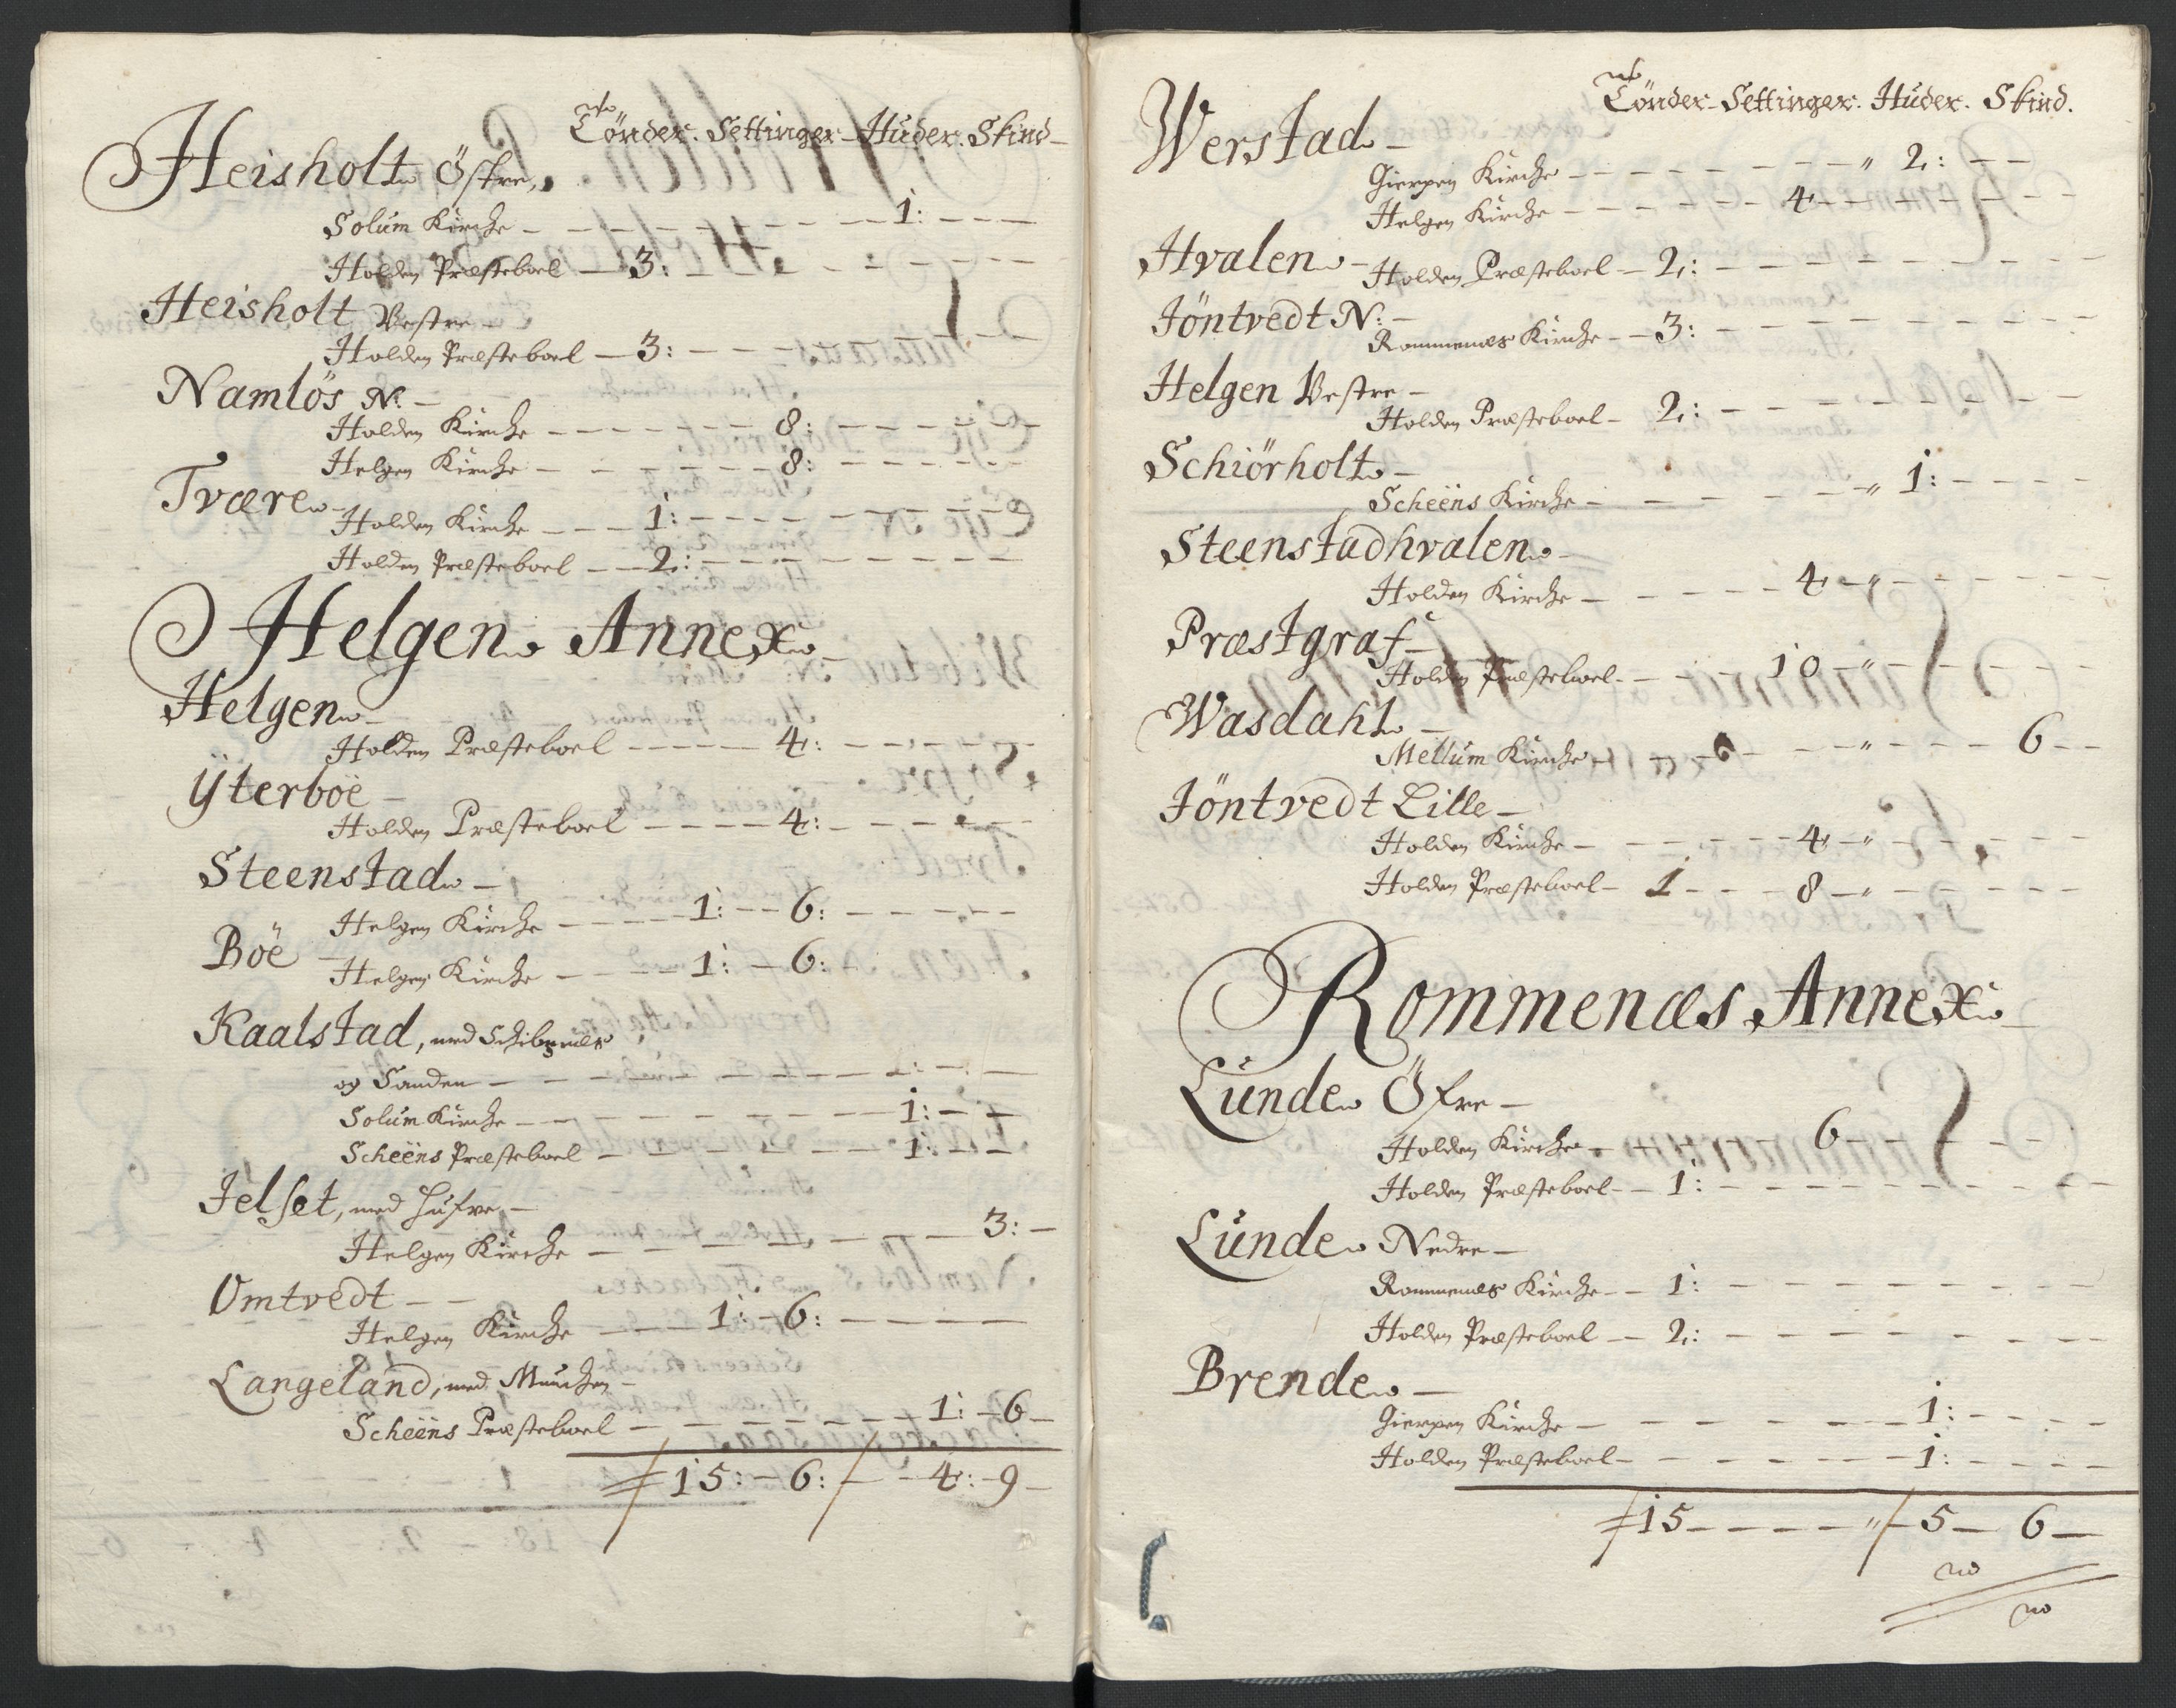 Tönder. Settinger Huder. Skind
Heisholt Östre
Solum Kirche 1:
Holden Præsteboel 3:
Heisholt Vestre
Holden Præsteboel 3:
Namlös N:
Holden Kirche 8:
Helgen Kirche 8:
Tvære
Holden Kirche 1:
Holden Præsteboel 2:
Helgen Annex
Helgen
Holden Præsteboel 4:
Ÿterböe
Holden Præsteboel 4:
Steenstad
Helgen Kirche 1: 6:
Böe
Helgen Kirche 1: 6:
Kaalstad, med
og Sanden
Solum Kirche 1:
Scheens Præsteboel 1:
Jelset, med
Helgen Kirche 3:
Omtvedt
Helgen Kirche 1: 6:
Langeland, med Munchen
Scheens Præsteboel 1: 6
15: 6: 4: 9
Tönder Settinger. Huder. Skind.
Werstad
Gierpen Kirche " 2:
Helgen Kirche 4
Hvalen
Holden Præsteboel 2:
Jöntvedt N:
Rommenæs Kirche 3:
Helgen Vestre
Holden Præsteboel 2:
Schiörholt
Scheens Kirche " 1:
Steenstadhvalen
Holden Kirche 4 "
Præstgraf
Holden Præsteboel 10 "
Wasdahl
Mellum Kirche " 6
Jöntvedt Lille
Holden Kirche 4 "
Holden Præsteboel 1 8 "
Rommenæs Annex
Lunde Öfre
Holden Kirche 6
Holden Præsteboel 1:
Lunde Nedre
Rommenæs Kirche 1:
Holden Præsteboel 2:
Brende
Gierpen Kirche 1:
Holden Præsteboel 1:
15 " 5 6